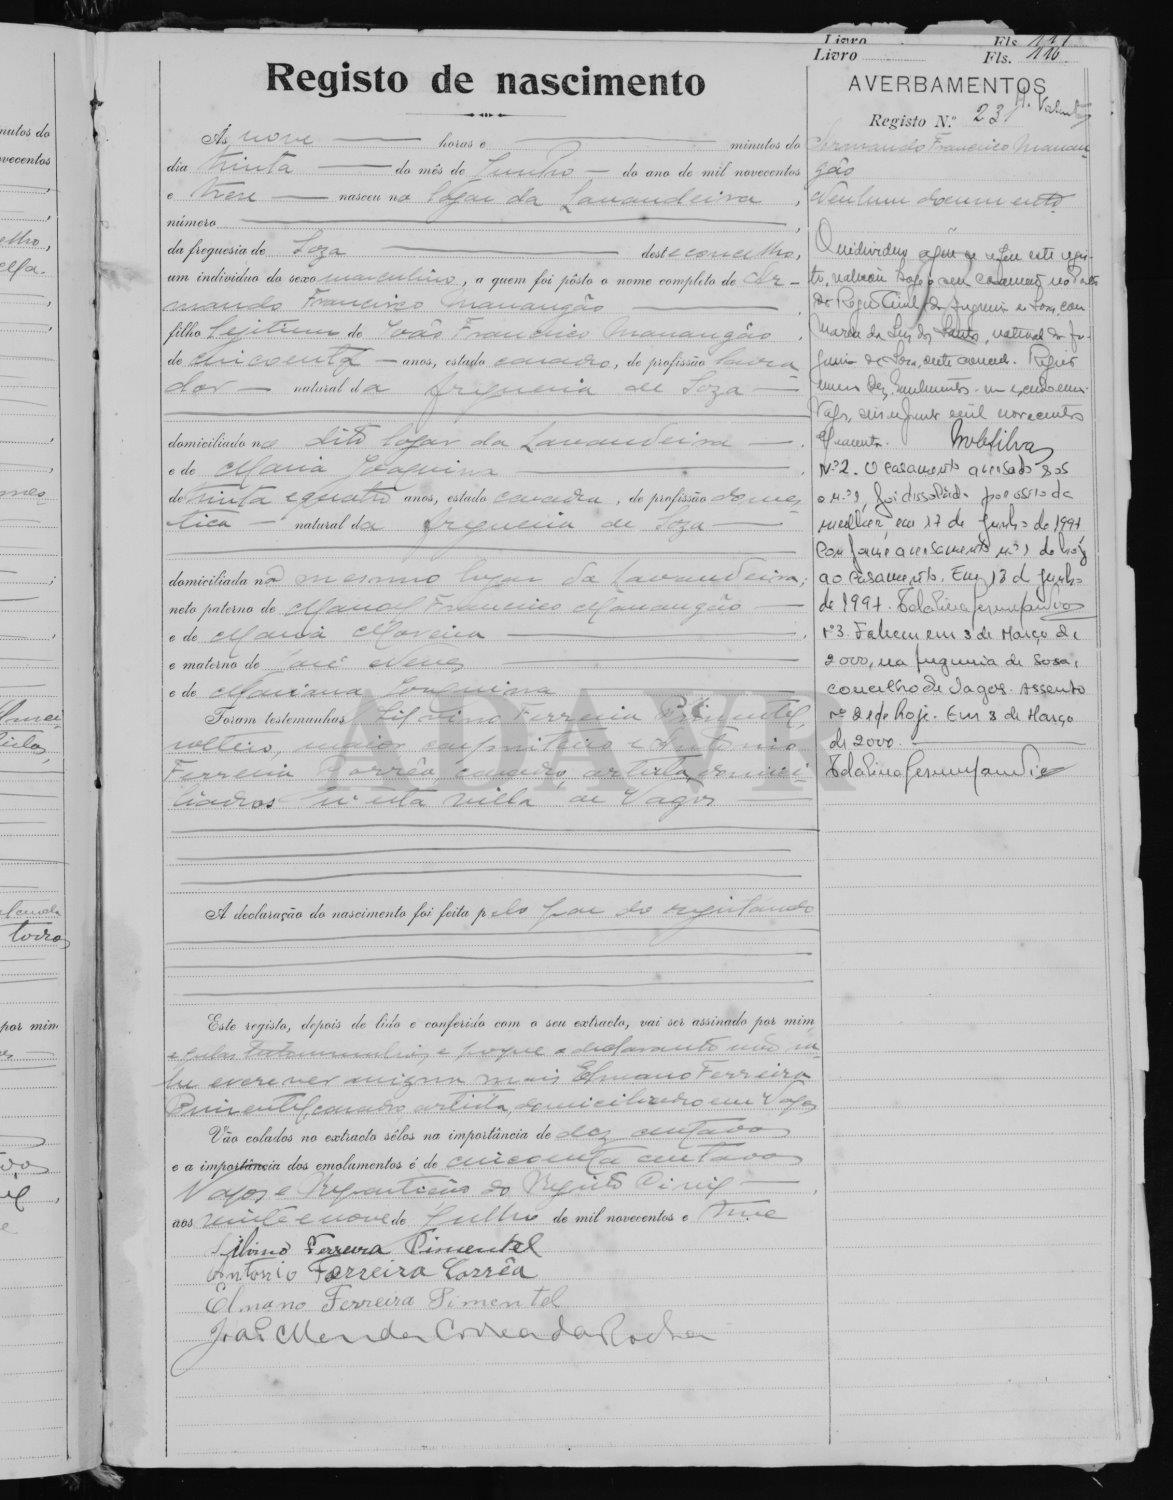 Livro Fls. 117
Livro Fls. 116
Registo de nascimento
Ás nove horas e minutos do
dia trinta do mês de Junho do ano de mil novecentos
e treze nasceu no logar da Lavandeira,
número
da freguesia de Soza deste concelho,
um individuo do sexo masculino, a quem foi pôsto o nome completo de Ar-
mando Francisco Manangão
filho legitimo de João Francisco Manangão,
de cincoenta anos, estado casado, de profissão lavra
dor natural da freguesia de Soza
domiciliado no dito logar da Lavandeira,
e de Maria Joaquina,
de trinta e quatro anos, estado casada, de profissão domes
tica natural da freguesia de Soza
domiciliada no mesmo logar da Lavandeira;
neto paterno de Manoel Francisco Manangão
e de Maria Moreira,
e materno de José Neves
e de Mariana Joaquina
Foram testemunhas Silvino Ferreira Pimentel,
solteiro, maior, carpinteiro e Antonio
Ferreira Corrêa, casado, artista, domici
liados n'esta villa de Vagos
A declaração do nascimento foi feita pelo pae do registando
Este registo, depois de lido e conferido com o seu extracto, vai ser assinado por mim
e pelas testemunhas e porque o declarante não sa-
be escrever assigna mais Elmano Ferreira
Pimentel, casado, artista, domiciliado em Vagos
Vão colados no extracto sêlos na importância de dez centavos
e a importância dos emolumentos é de cincoenta centavos
Vagos e Repartição do Registo Civil,
aos vinte e nove de Julho de mil novecentos e treze
Silvino Ferreira Pimentel
Antonio Ferreira Corrêa
Elmano Ferreira Pimentel
João Mendes Correia da Rocha
AVERBAMENTOS
Registo N.º 231
Armando Francisco Manan-
gão
Nenhum documento
O individuo a que se refere este regis-
to, casamento
do Registo Civil da freguesia de Soza, com
Maria da Luz dos Santos, natural da fre
guesia de Soza, deste concelho.
Vagos, mil novecentos
N.º 2. O casamento averbado sob
o n.º 1, foi dissolvido por óbito da
mulher, em 17 de Junho de 1997
Conforme averbamento n.º 1 de hoje
ao casamento. Em 13 de Junho
de 1997.
N.º 3. Faleceu em 3 de Março de
2000, na freguesia de Sosa,
concelho de Vagos. Assento
nº 21 de hoje. Em 3 de Março
de 2000.
ADAVR